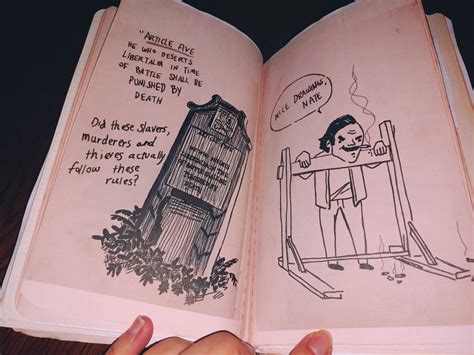 "ARTICLE FIVE
HE WHO DESERTS
LIBERTALIA IN TIME
OF BATTLE SHALL BE
PUNISHED BY
DEATH
Did these slavers,
murderers and
thieves actually
follow these
rules?
NICE DRAWING,
NATE